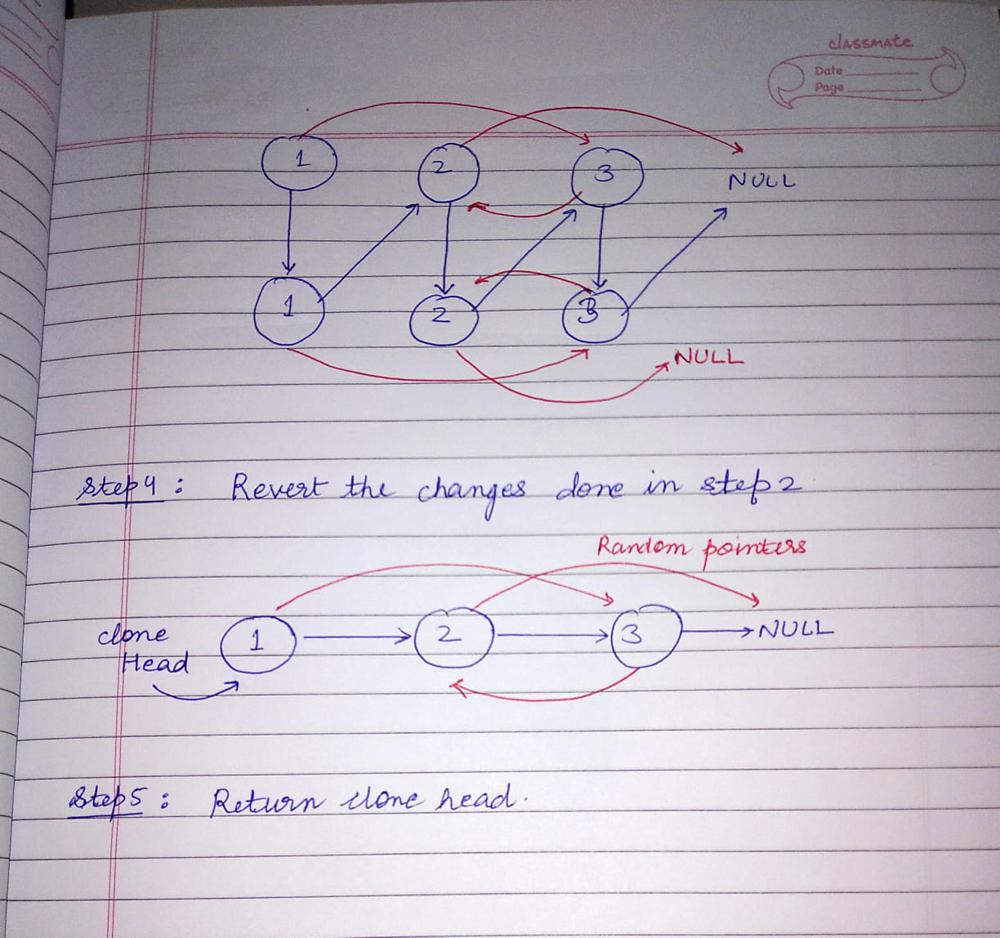 classmate
Date
Page
1 2 3 NULL
1 2 3
NULL
Step 4 : Revert the changes done in step 2
Random pointers
clone
Head
1 2 3 NULL
Step 5 : Return clone head.